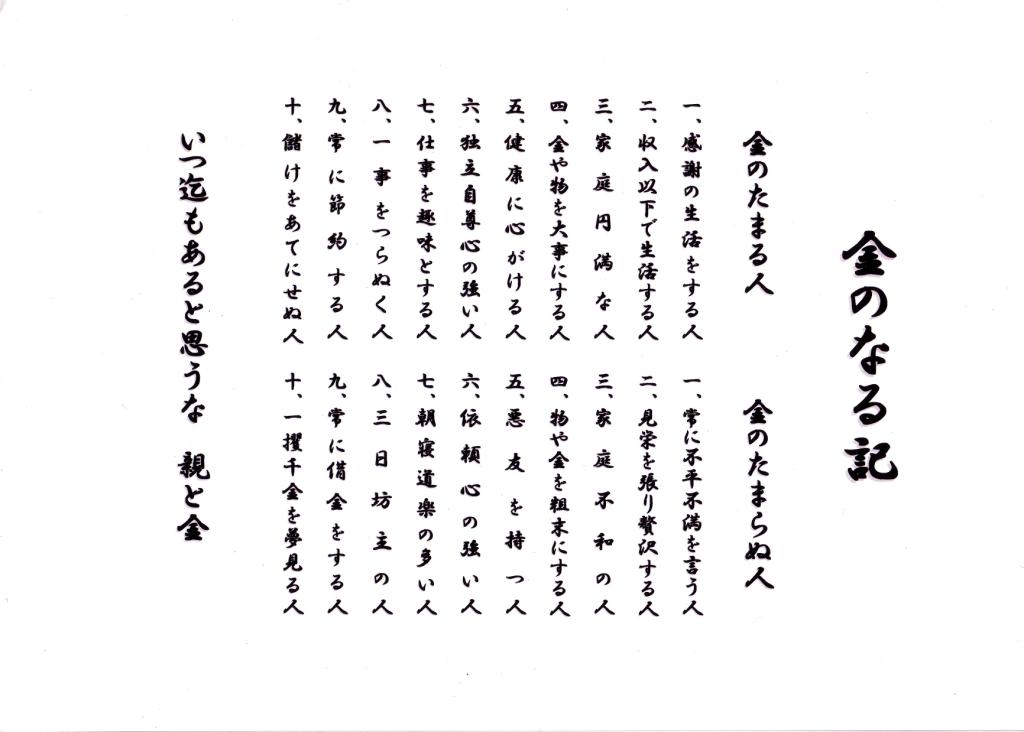 金のなる記
金のたまる人
一、感謝の生活をする人
二、収入以下で生活する人
三、家庭円満な人
四、金や物を大事にする人
五、健康に心がける人
六、独立自尊心の強い人
七、仕事を趣味とする人
八、一事をつらぬく人
九、常に節約する人
十、儲けをあてにせぬ人
金のたまらぬ人
一、常に不平不満を言う人
二、見栄を張り贅沢する人
三、家庭不和の人
四、物や金を粗末にする人
五、悪友を持つ人
六、依頼心の強い人
七、朝寝道楽の多い人
八、三日坊主の人
九、常に借金をする人
十、一攫千金を夢見る人
いつ迄もあると思うな 親と金